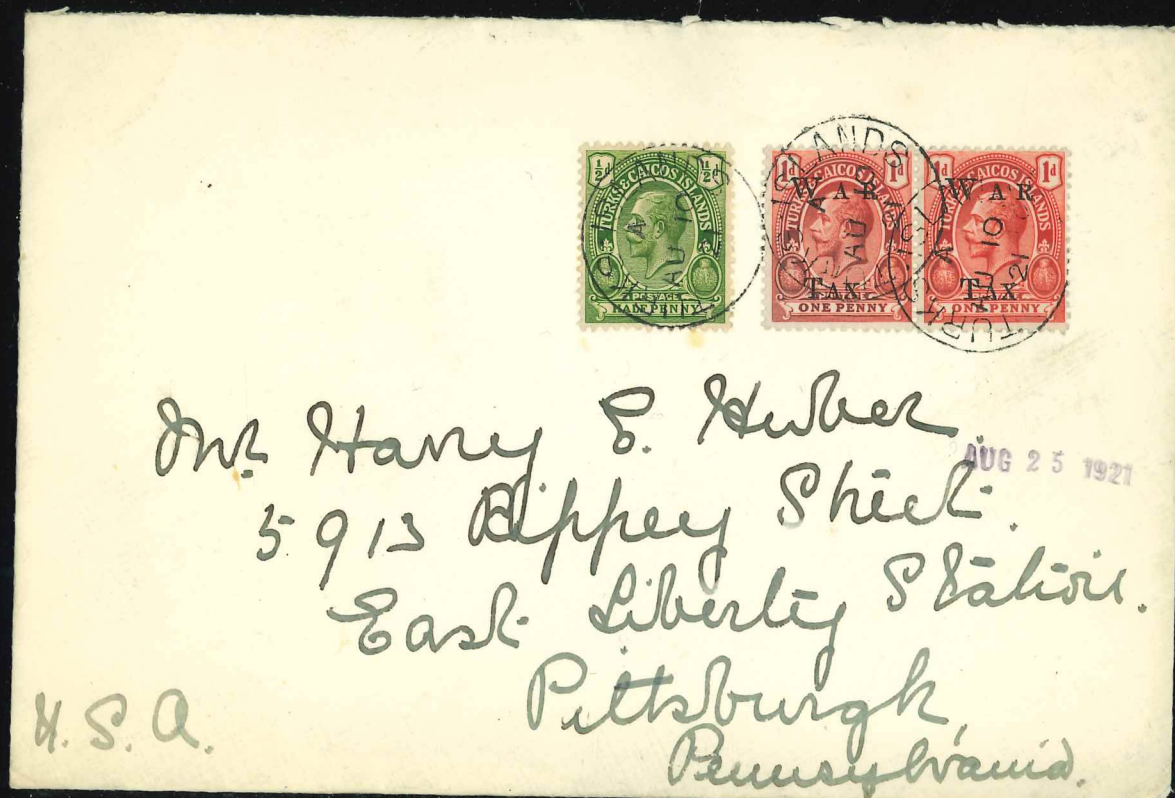 ½d ½d
TURKS & CAICOS ISLANDS
POSTAGE
HALFPENNY
AU 10
1d 1d
TURKS & CAICOS ISLANDS
WAR
TAX
ONE PENNY
ISLANDS
AU 10
1d 1d
TURKS & CAICOS ISLANDS
WAR
TAX
ONE PENNY
TURKS ISL
A
AU 10
21
Mr. Harry E. Huber
AUG 25 1921
5913 Rippey Street.
East Liberty Station.
Pittsburgh,
U.S.A.
Pennsylvania.